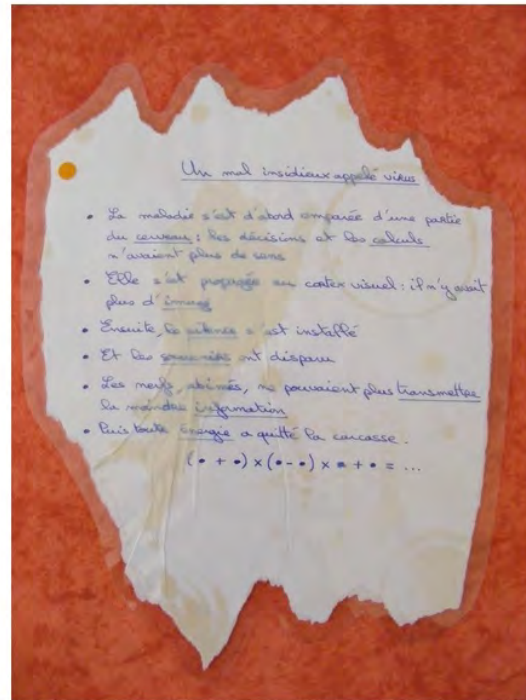 Un mal insidieux appelé virus
• La maladie s'est d'abord emparée d'une partie
du cerveau : les décisions et les calculs
n'avaient plus de sens
• Elle s'est propagée au cortex visuel : il n'y avait
plus d'image
• Ensuite, le silence s'est installé
• Et les souvenirs ont disparu
• Les nerfs, abimés, ne pouvaient plus transmettre
la moindre information
• Puis toute énergie a quitté la carcasse.
(• + •) × (• - •) × • + • = ...